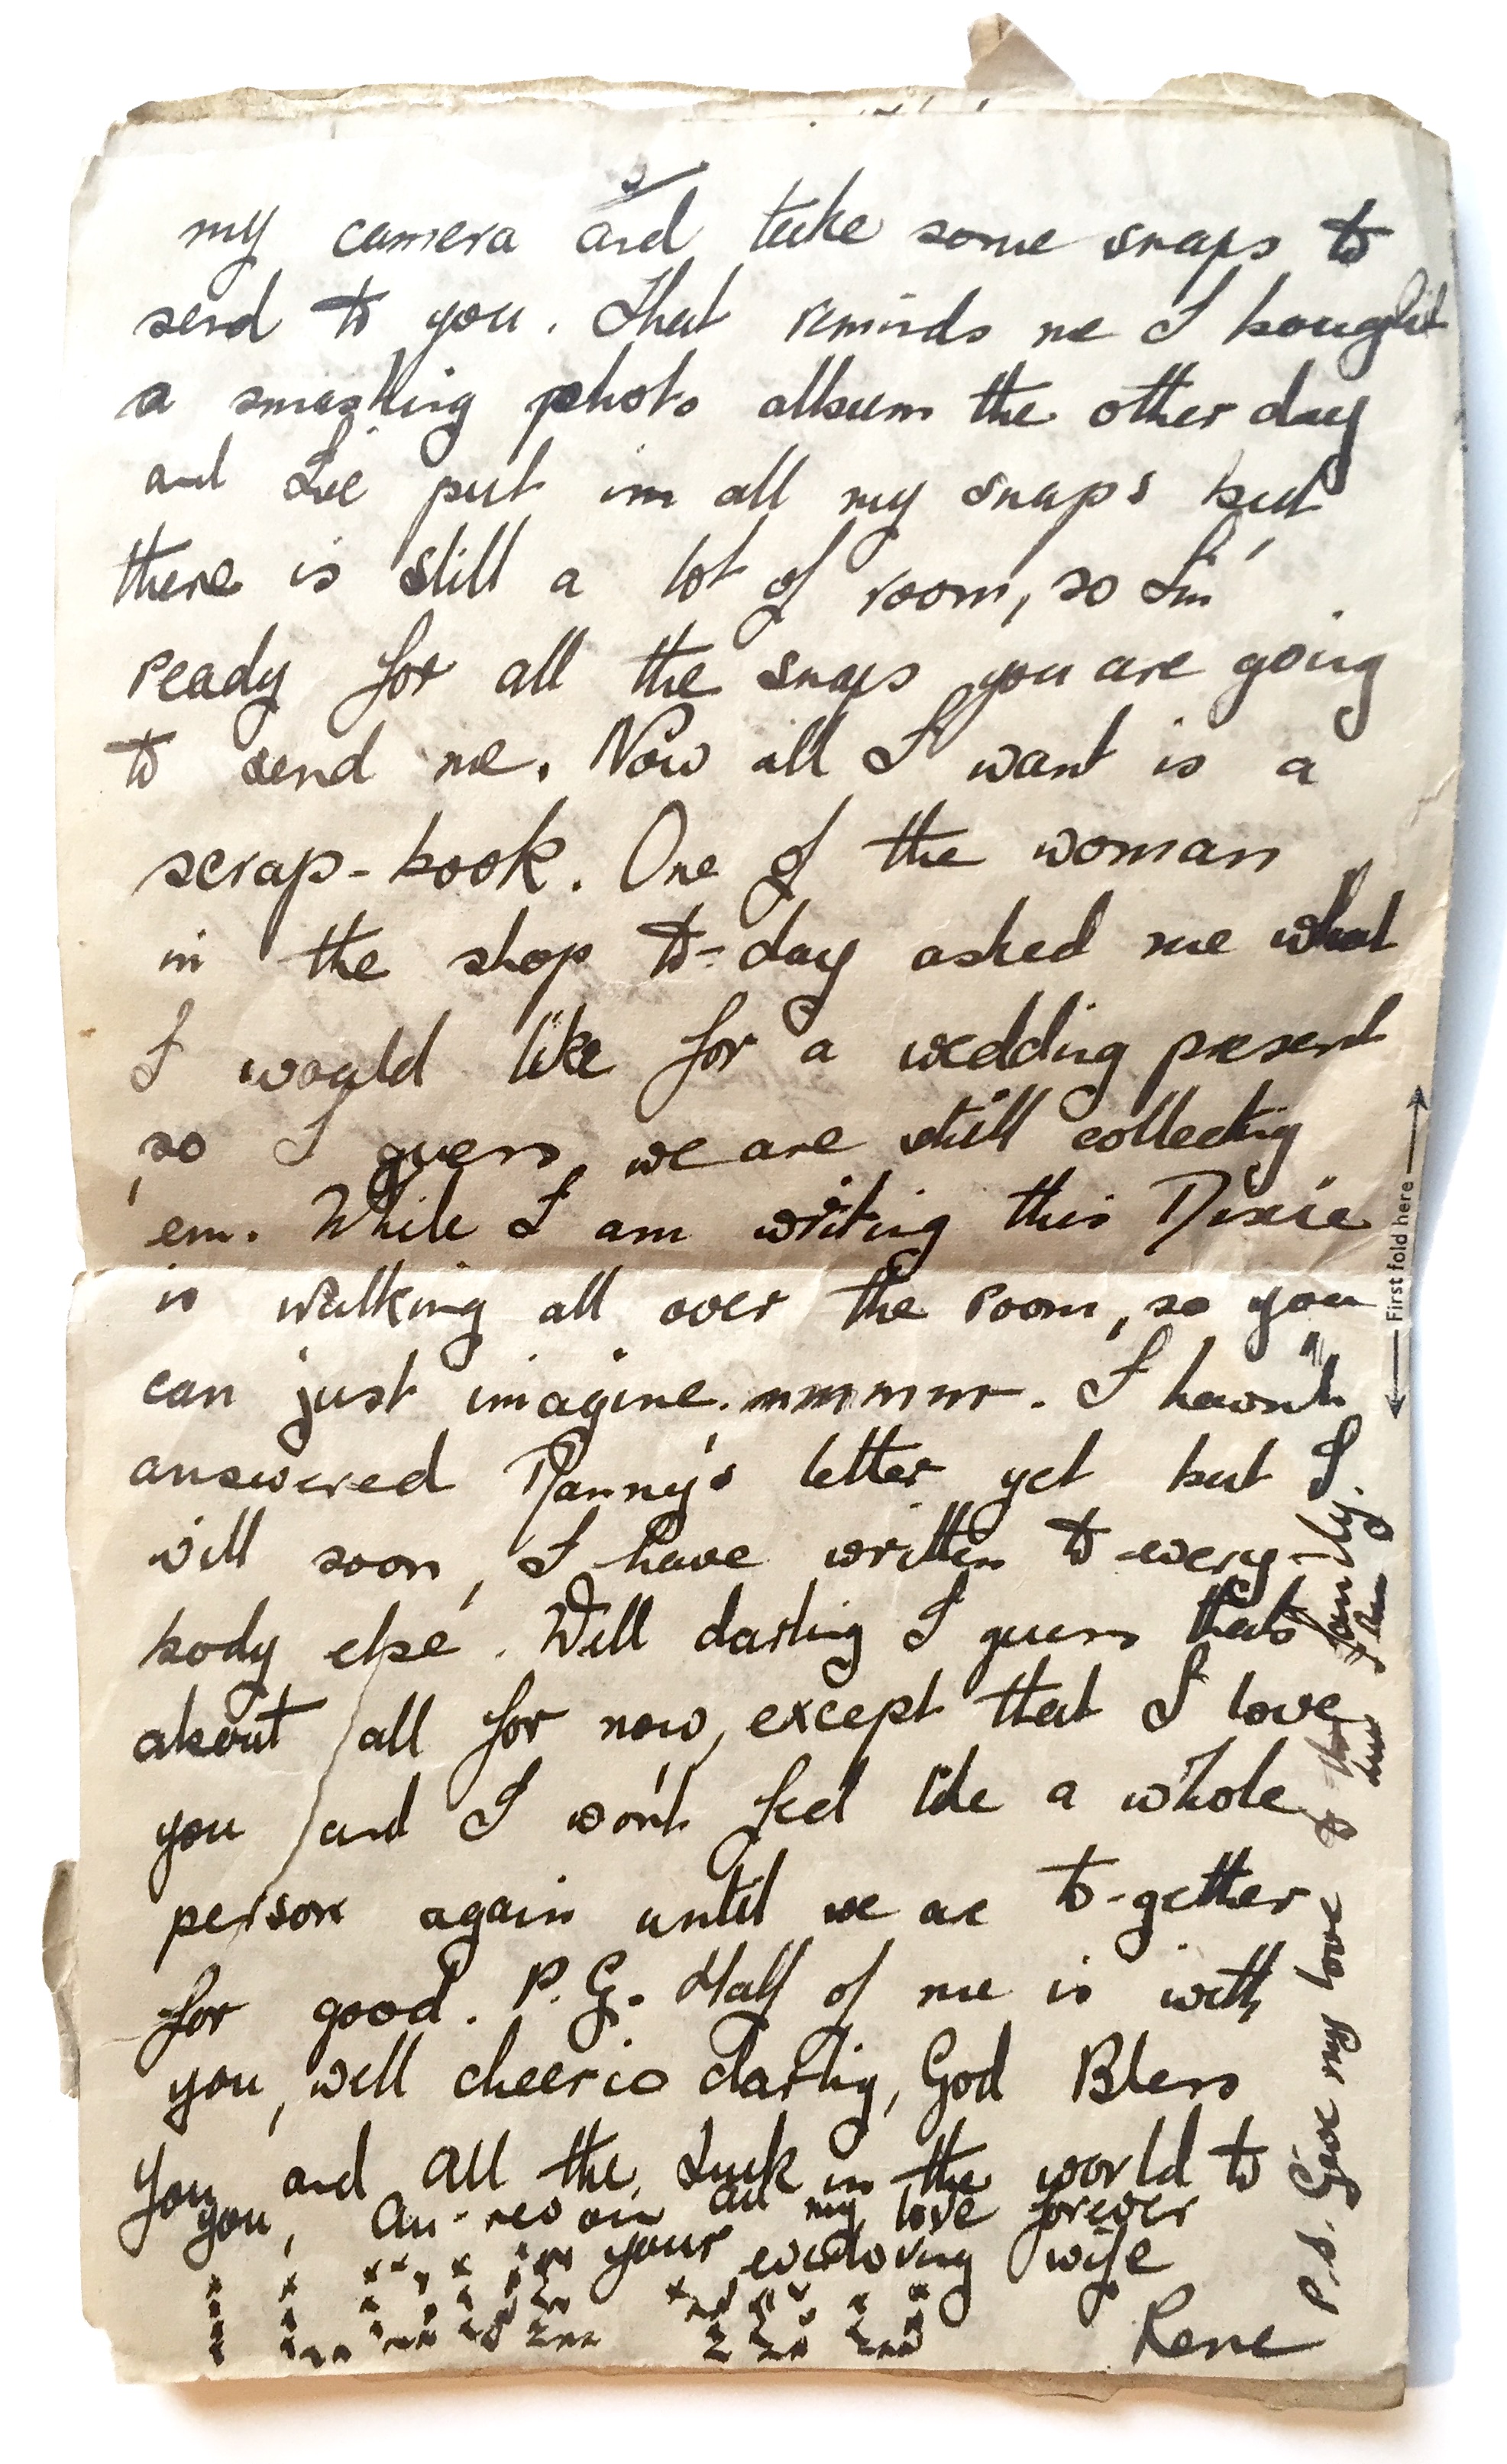 my camera and take some snaps to
send to you. That reminds me I bought
a smashing photo album the other day
and I've put im all my snaps but
there is still a lot of room, so I'm
ready for all the snaps you are going
to send me. Now all I want is a
scrap-book. One of the woman
in the shop to-day asked me what
I would like for a wedding present
so I guess we are still collecting
'em. While I am writing this Dixie
is walking all over the room, so you
can just imagine. mmmmm. I havn't
answered Danny's letter yet but I
will soon, I have written to every-
body else. Well darling I guess thats
about all for now, except that I love
you and I won't feel like a whole
person again until we are to-gether
for good. P.G. Half of me is with
you, well cheerio darling, God Bless
you and all the Luck in the world to
you, Au-revoir all my love forever
your everloving wife
I LOVE YOU
Rene
P.S. Give my love to the family.
First fold here